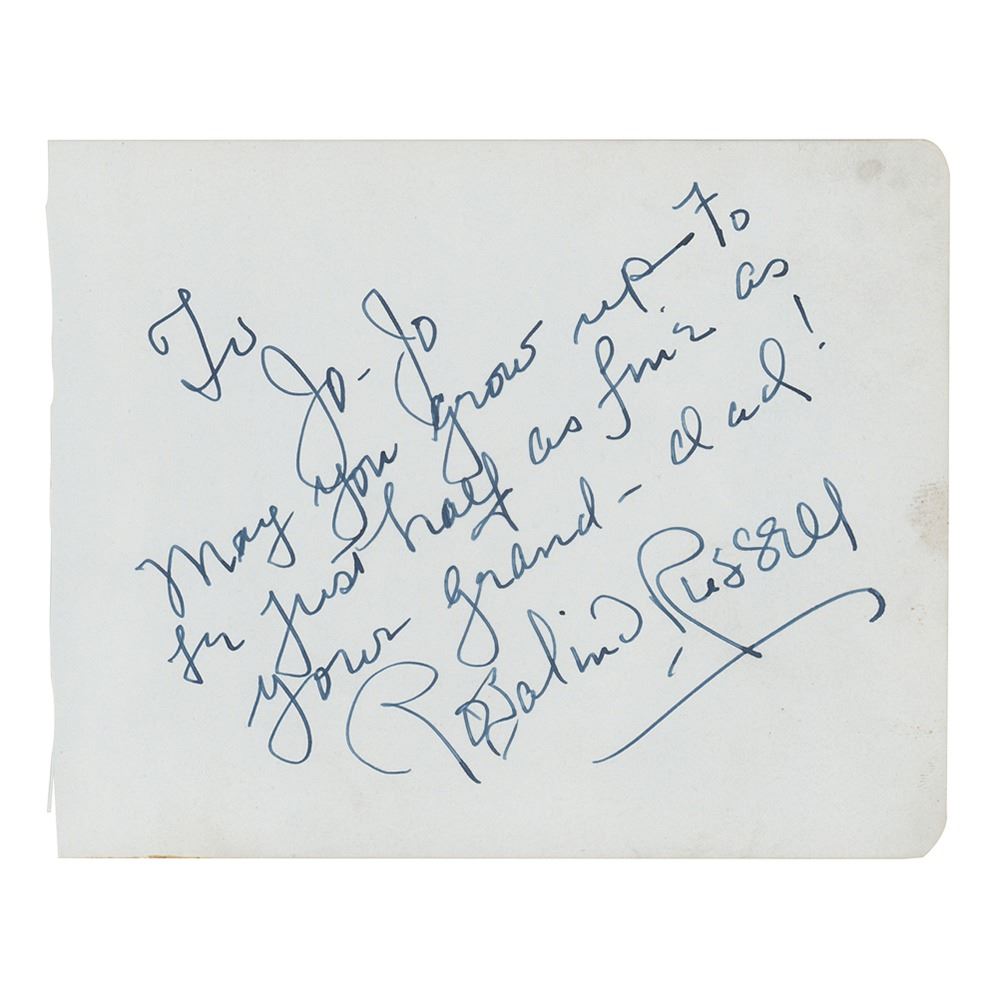 To
Jo-Jo
May you grow up to
be just half as fine as
your grand-dad!
Rosalind Russell